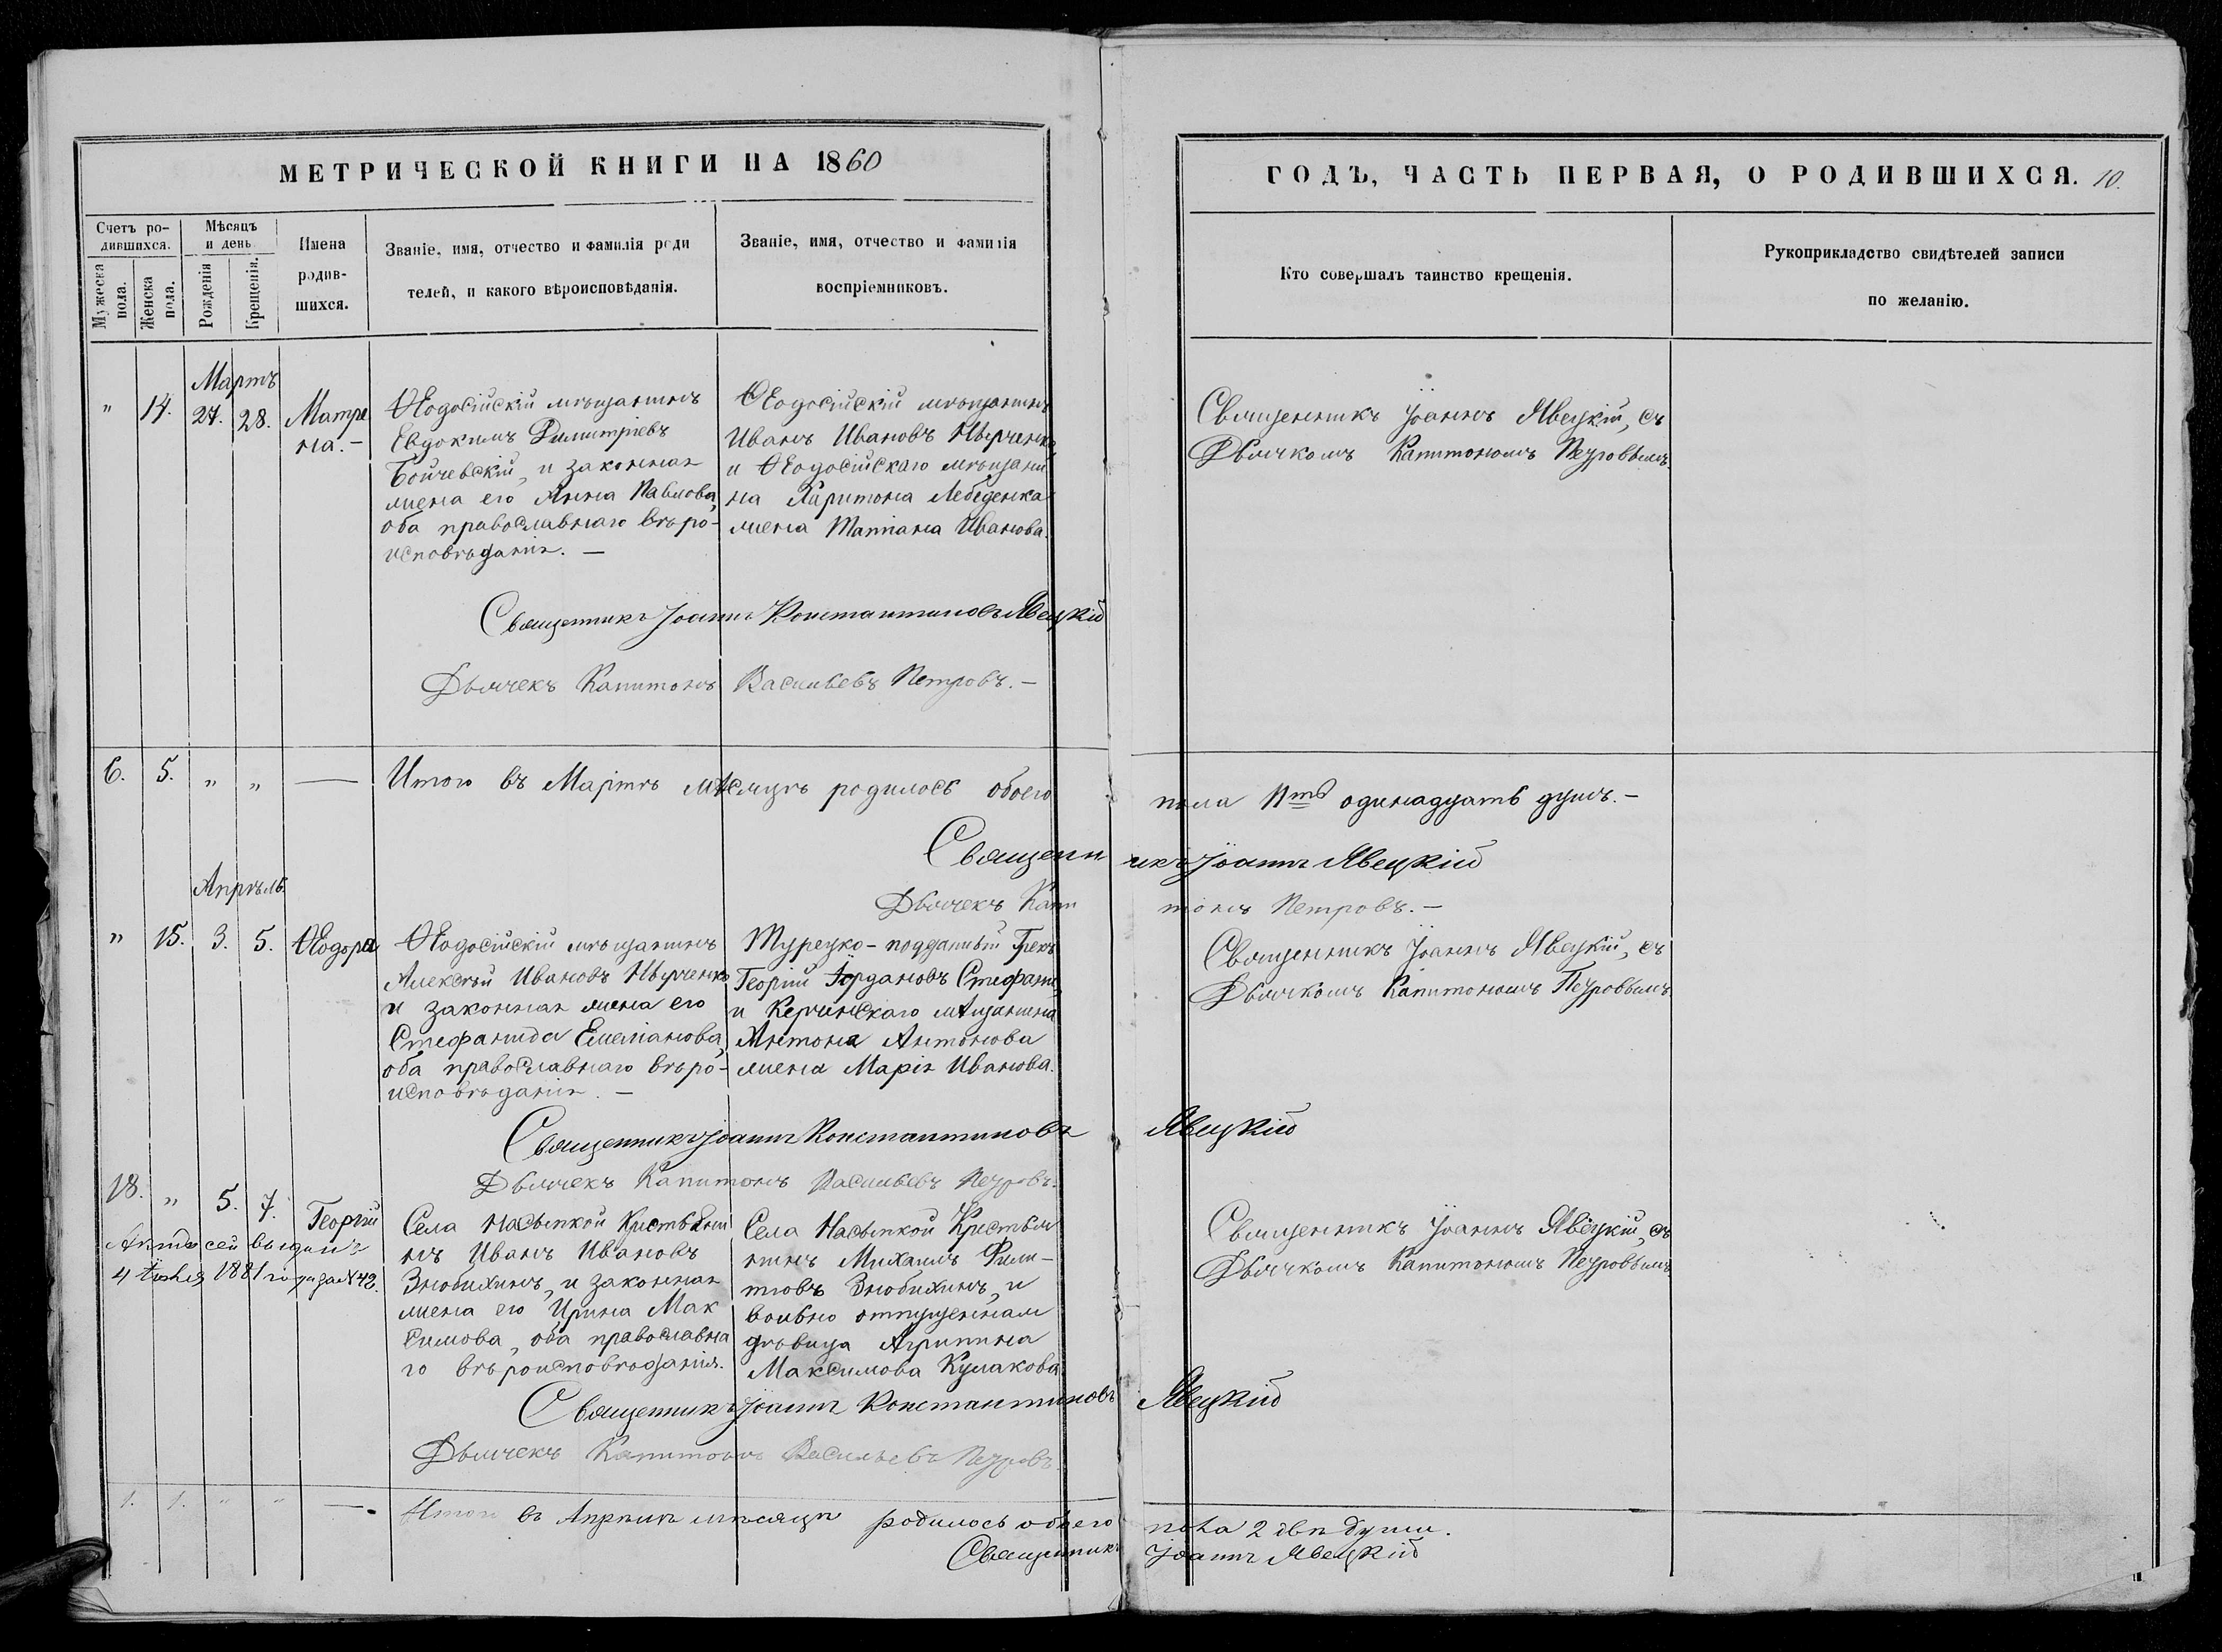 МЕТРИЧЕСКОЙ КНИГИ НА 1860
ГОДЪ, ЧАСТЬ ПЕРВАЯ, О РОДИВШИХСЯ. 10.
Счетъ ро-
дившихся.
Мѣсяцъ
и день
Мужеска
пола.
Женска
пола.
Рожденія
Крещенія.
Имена
родив-
шихся.
Званіе, имя, отчество и фамилія роди
телей, и какого вѣроисповѣданія.
Званіе, имя, отчество и фамилія
воспріемниковъ.
Кто совершалъ таинство крещенія.
Рукоприкладство свидѣтелей записи
по желанію.
Мартъ
" 14. 27. 28. Матре
на. —
Ѳеодосійскій мѣщанинъ
Евдокимъ Димитріевъ
Бойчевскій, и законная
жена его Анна Павлова,
оба православнаго вѣро-
исповѣданія. —
Ѳеодосійскій мѣщанинъ
Иванъ Ивановъ
и Ѳеодосійскаго мѣщани
на Харитона Лебеденка
жена Татіана Иванова.
Священникъ Іоаннъ Явецкій, съ
Дьячкомъ Капитономъ Петровымъ.
Священникъ Іоаннъ Константиновъ Явецкій
Дьячекъ Капитонъ Васильевъ Петровъ. —
6. 5. " " — Итого въ Мартѣ мѣсяцѣ родилось обоего пола 11ть одинадцать душъ. —
Священникъ Іоаннъ Явецкій
Дьячекъ Капитонъ Петровъ. —
Апрѣль.
" 15. 3. 5. Ѳеодора
Ѳеодосійскій мѣщанинъ
Алексѣй Ивановъ
и законная жена его
Стефанида Емеліанова,
оба православнаго вѣро-
исповѣданія. —
Турецко-подданный Грекъ
Георгій Іордановъ
и Керчинскаго мѣщанина
Антона Антонова
жена Марія Иванова.
Священникъ Іоаннъ Явецкій, съ
Дьячкомъ Капитономъ Петровымъ.
Священникъ Іоаннъ Константиновъ Явецкій
Дьячекъ Капитонъ Васильевъ Петровъ.
18. " 5. 7. Георгій
сей выданъ
4 1881 года за № 42.
Села Насыпкой Крестьяни
нъ Иванъ Ивановъ
Знобихинъ, и законная
жена его Ирина Мак
симова, оба православна
го вѣроисповѣданія.
Села Насыпкой Крестья
нинъ Михаилъ Фили-
повъ Знобихинъ, и
вольно отпущенная
дѣвица Агрипина
Максимова Кулакова.
Священникъ Іоаннъ Явецкій, съ
Дьячкомъ Капитономъ Петровымъ.
Священникъ Іоаннъ Константиновъ Явецкій
Дьячекъ Капитонъ Васильевъ Петровъ.
1. 1. " " — Итого въ Апрѣлѣ мѣсяцѣ родилось обоего пола 2 двѣ души.
Священникъ Іоаннъ Явецкій